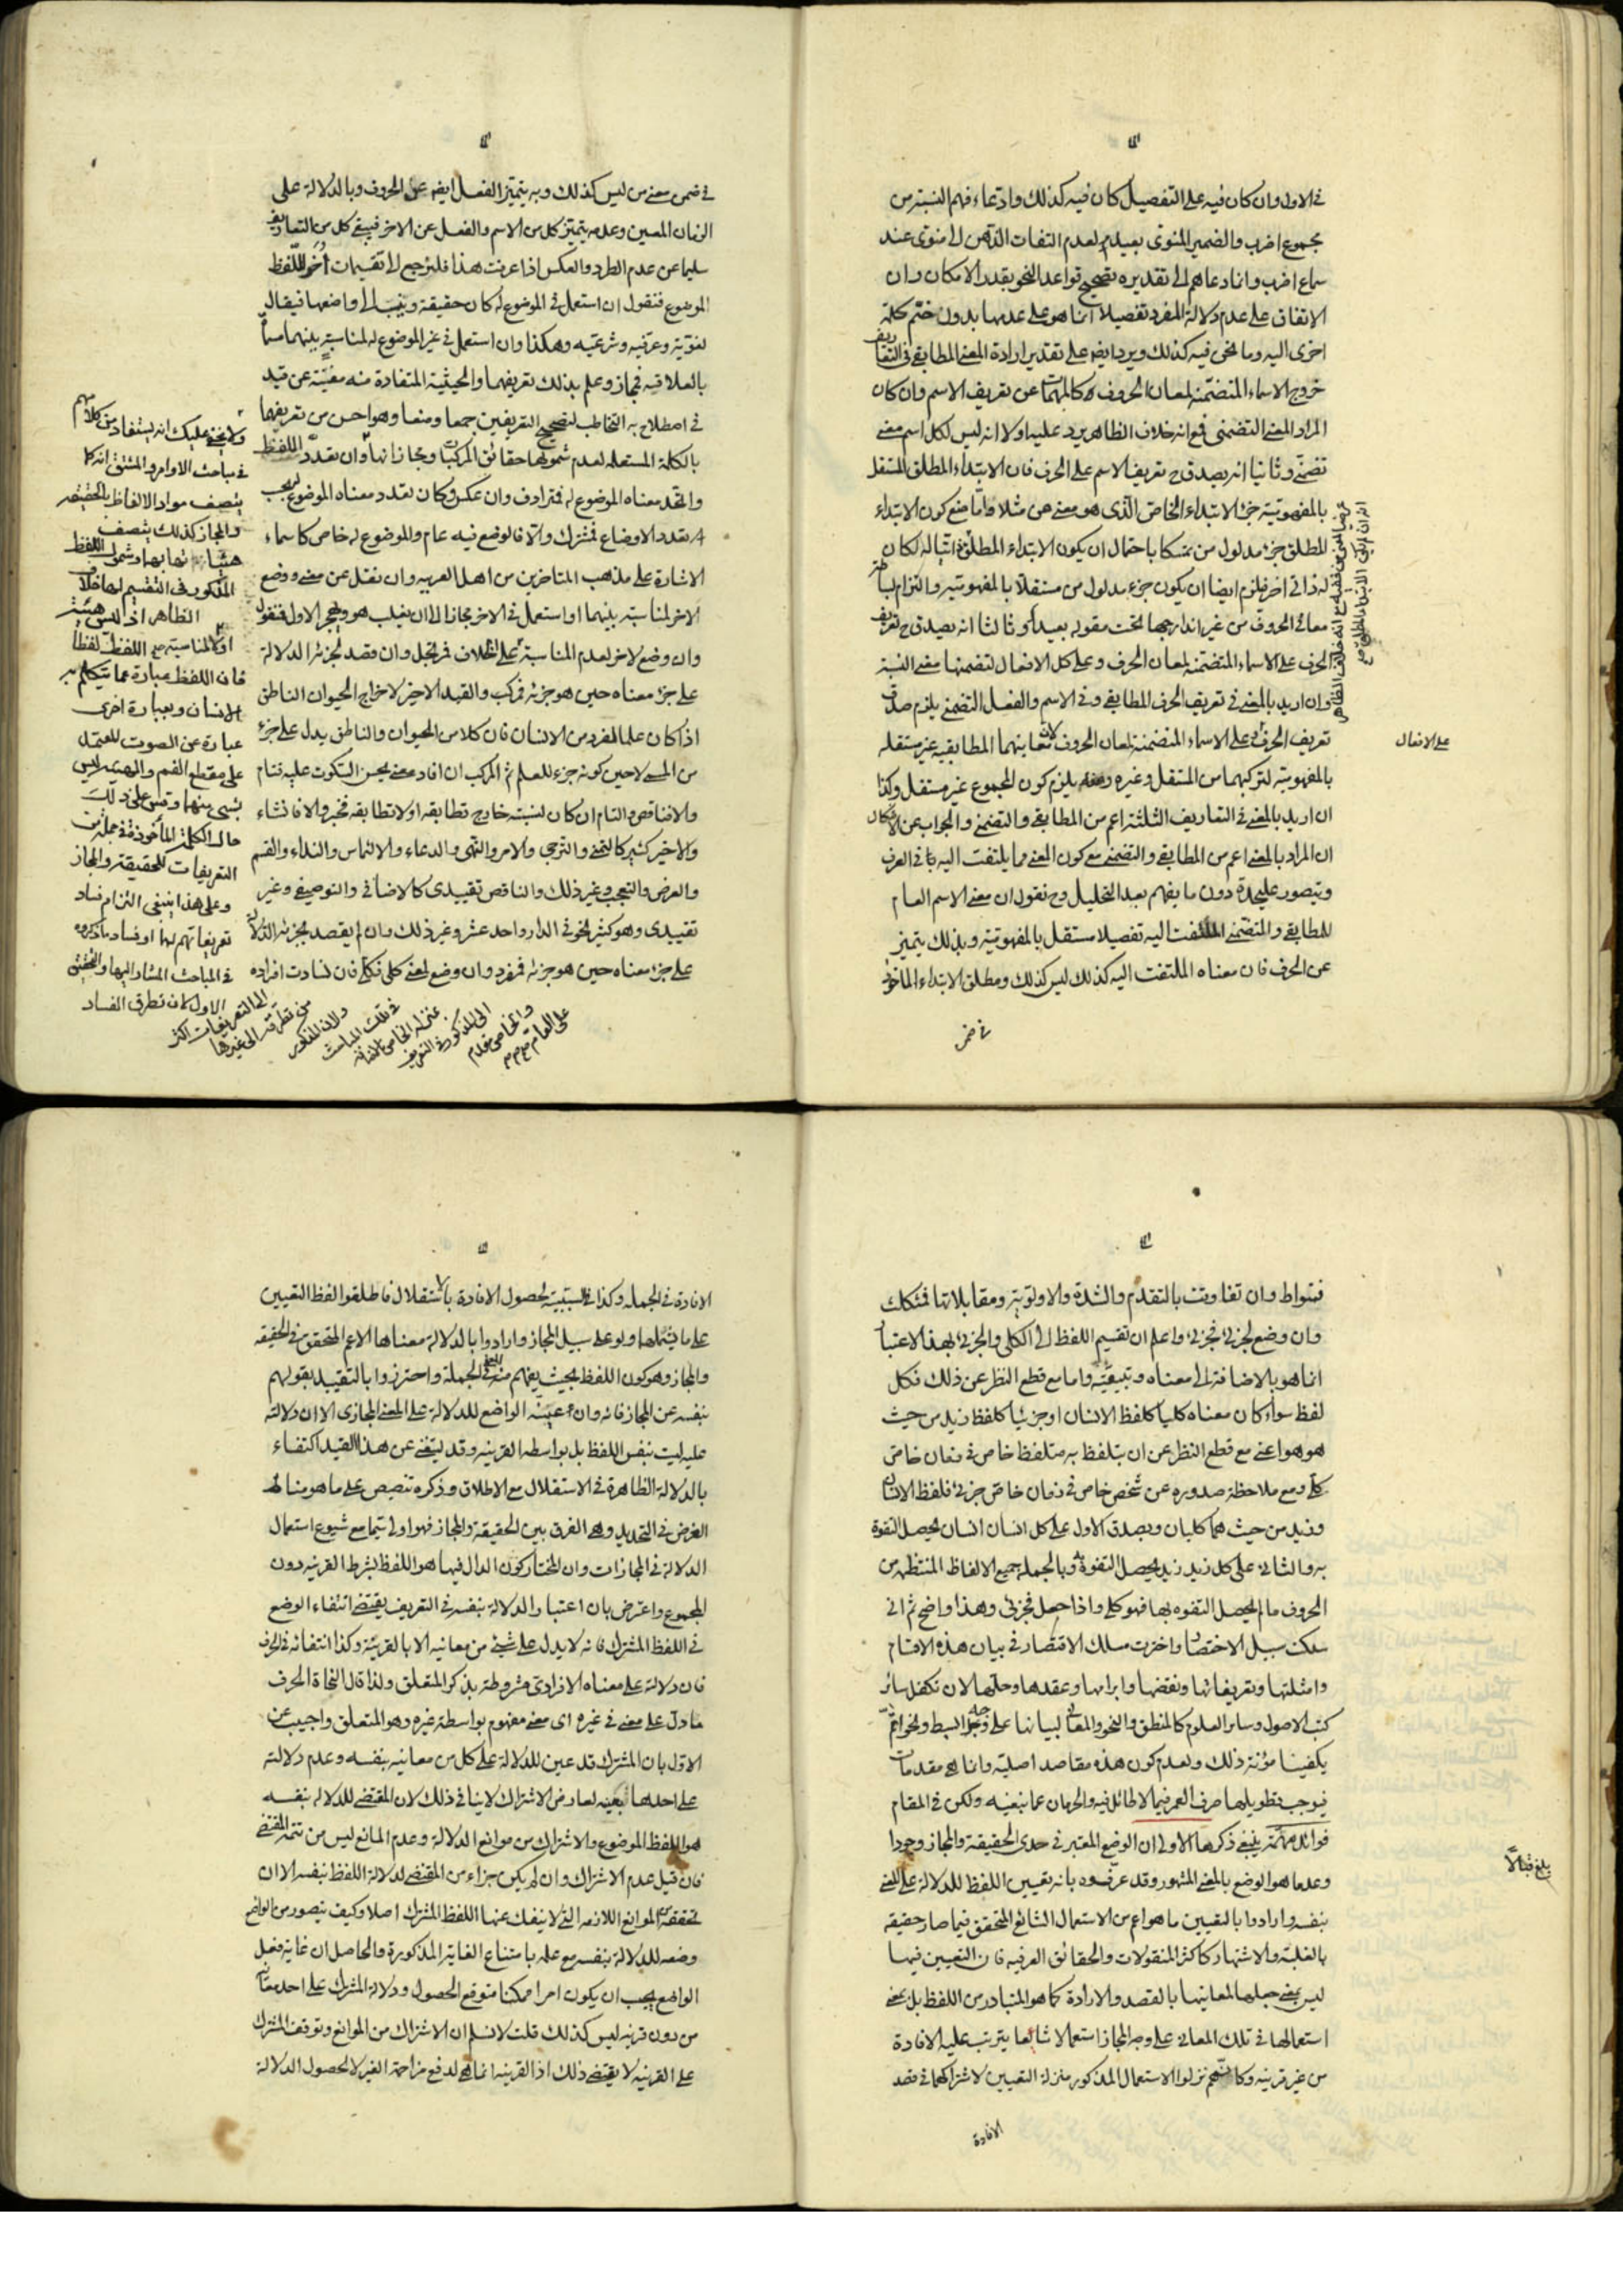 في الاول وان كان فيه على التفصيل كان فيه كذلك وادعاء فهم النسبة من
مجموع اضرب والضمير المنوى بعيد لعدم التفات الذهن الى منوى عند
سماع اضرب وانما دعاهم الى تقديره تصحيح قواعد النحو بقدر الامكان وان
الاتفاق على عدم دلالة المفرد تفصيلا انما هو على عدمها بدون ضم كلمة
اخرى اليه وما نحن فيه كذلك ويرد ايضه على تقدير ارادة المعنى المطابقى في التعاريف
خروج الاسماء المتضمنة لمعان الحروف كالمبهمات عن تعريف الاسم وان كان
المراد المعنى التضمنى فمع انه خلاف الظاهر يرد عليه اولا انه ليس لكل اسم معنى
تضمنى وثانيا انه يصدق ح تعريف الاسم على الحرف فان الابتداء المطلق المستقل
بالمفهومية جزء الابتداء الخاص الذى هو معنى من مثلا واما منع كون الابتداء
المطلق جزء مدلول من تمسكا باحتمال ان يكون الابتداء المطلق
معانى الحروف من غير اندارجها تحت مقوله بعيد وثالثا انه يصدق ح تعريف
الحرف على الاسماء المتضمنة لمعان الحرف وعلى كل الافعال لتضمنها معنى النسبة
وان اريد بالمعنى في تعريف الحرف المطابقى وفي الاسم والفعل التضمنى يلزم صدق
تعريف الحرف على الاسماء المتضمنة لمعان الحروف لان معاينهما المطابقيه غير مستقله
بالمفهومية لتركبهما من المستقل وغيره يلزم كون المجموع غير مستقل وكذا
ان اريد بالمعنى في التعاريف الثلثة اعم من المطابقى والتضمنى والجواب عن الاشكال
ان المراد بالمعنى اعم من المطابقى والتضمنى مع كون المعنى مما يلتفت اليه في العرف
ويتصور عليحدة دون ما يفهم بعد التحليل وح نقول ان معنى الاسم العام
للمطابقى والتضمنى الملتفت اليه تفصيلا مستقل بالمفهومية وبذلك يتميز
عن الحرف فان معناه الملتفت اليه كذلك ليس كذلك ومطلق الابتداء الماخوذ
في ضمن
على الافعال
في ضمن معنى من ليس كذلك وبه يتميز الفعل ايضه عن الحروف وبالدلالة على
الزمان المعين وعدمه يتميز كل من الاسم والفعل عن الاخر فيبقى كل من التعاريف
سليما عن عدم الطرد والعكس اذا عرفت هذا فلنرجع الى تقسيمات اخر للفظ
الموضوع فنقول ان استعمل في الموضوع له كان حقيقة وينسب الى واضعها فيقال
لغوية وعرفيه وشرعيه وهكذا وان استعمل في غير الموضوع له لمناسبة بينهما مسماة
بالعلاقه فمجاز وعلم بذلك تعريفهما والحيثية المستفادة منه مغنية عن قيد
في اصطلاح به التخاطب لتصحيح التعريفين جمعا ومنعا وهو احسن من تعريفهما
بالكلمة المستعملة لعدم شمولها حقائق المركبات ومجازاتها وان تعدد اللفظ
واتحد معناه الموضوع له فمترادف وان عكس وكان تعدد معناه الموضوع له بحسب
تعدد الاوضاع فمشترك والا فالوضع فيه عام والموضوع له خاص كاسماء
الاشارة على مذهب المتاخرين من اهل العربيه وان نقل عن معنى ووضع
الاخر لمناسبة بينهما او استعمل في الاخر مجازا الى ان يغلب هو ويهجر الاول فمنقول
وان وضع لاخر لعدم المناسبة على الخلاف فمرتجل وان قصد لجزئه الدلالة
على جزء معناه حين هو جزئه فمركب والقيد الاخير لاخراج الحيوان الناطق
اذا كان علما لمفرد من الانسان فان كلا من الحيوان والناطق يدل على جزء
من المسمى لا حين كونه جزء للعلم ثم المركب ان افاد معنى يحسن السكوت عليه فتام
والا فناقص والتام ان كان لنسبته خارج تطابقه او لا تطابقه فخبر والا فانشاء
والاخير كثير كالتمنى والترجى والامر والنهى والدعاء والالتماس والنداء والقسم
والعرض والتعجب وغير ذلك والناقص تقييدى كالاضافى والتوصيفى وغير
تقييدى وهو كثير نحو في الدار واحد عشر وغير ذلك وان لم يقصد بجزئه الدلالة
على جزء معناه حين هو جزئه فمفرد وان وضع لمعنى كلى فكلى فان تساوت افراده
ولا يخفى عليك انه يستفاد من كلامهم
في مباحث الاوامر والمشتق انه كما
يتصف مواد الالفاظ بالحقيقه
والمجاز كذلك يتصف
هيئاتها بهما وشمول اللفظ
المذكور في التقسيم لها خلاف
الظاهر اذ ليس هيئة
اللفظ لفظا
فان اللفظ عبارة عما يتكلم به
الانسان وبعبارة اخرى
عبارة عن الصوت المعتمد
على مقطع الفم والهيئه ليس
بشئ منهما وقس على ذلك
حال الكلمة المأخوذة في جملة من
التعريفات للحقيقة والمجاز
وعلى هذا ينبغى التزام فساد
تعريفاتهم لهما او فساد ما ذكروه
في المباحث المشار اليها والتحقيق
الاول لان تطرق الفساد
الى التعريفات اكثر
من تطرقه الى غيرها
فتواط وان تفاوتت بالتقدم والشدة والاولوية ومقابلاتها فمشكك
وان وضع لجزئى فجزئى واعلم ان تقسيم اللفظ الى الكلى والجزئى بهذا الاعتبار
انما هو بالاضافة الى معناه وتبعيته واما مع قطع النظر عن ذلك فكل
لفظ سواء كان معناه كليا كلفظ الانسان او جزئيا كلفظ زيد من حيث
هو هو اعنى مع قطع النظر عن ان يتلفظ به متلفظ خاص في زمان خاص
كلى ومع ملاحظة صدوره عن شخص خاص في زمان خاص جزئى فلفظ الانسان
وزيد من حيث هما كليان ويصدق الاول على كل انسان انسان يحصل التفوه
به والثانى على كل زيد زيد يحصل التفوه به وبالجمله جميع الالفاظ المنتظمه من
الحروف ما لم يحصل التفوه بها فهو كلى واذا حصل فجزئى وهذا واضح ثم انى
سلكت سبيل الاختصار واخترت مسلك الاقتصار في بيان هذه الاقسام
وامثلتها وتعريفاتها ونقضها وابرامها وعقدها وحلها لان تكفل سائر
كتب الاصول وسائر العلوم كالمنطق والنحو والمعانى لبيانها على وجه البسط ونحو اتم
يكفينا مؤنة ذلك ولعدم كون هذه مقاصد اصلية وانما هى مقدمات
فيوجب تطويلها صرف العمر فيما لا طائل فيه والحرمان عما نبغيه ولكن في المقام
فوائد مهمة ينبغى ذكرها الاولى ان الوضع المعتبر في حدى الحقيقة والمجاز وجودا
وعدما هو الوضع بالمعنى المشهور وقد عرفوه بانه تعيين اللفظ للدلالة على المعنى
بنفسه وارادوا بالتعيين ما هو اعم من الاستعمال الشائع المتحقق فيما صار حقيقه
بالغلبة والاشتهار كاكثر المنقولات والحقائق العرفيه فان التعيين فيها
ليس بمعنى جعلها لمعانيها بالقصد والارادة كما هو المتبادر من اللفظ بل بمعنى
استعمالها في تلك المعانى على وجه المجاز استعمالا شائعا يترتب عليه الافادة
من غير قرينه وكانهم نزلوا الاستعمال المذكور منزلة التعيين لاشتراكهما في قصد
الافادة
بلغ قبالا
الافادة في الجمله وكذا في السببية لحصول الافادة بالاستقلال فاطلقوا لفظ التعيين
على ما يشملهما ولو على سبيل المجاز وارادوا بالدلالة معناها الاعم المتحقق في الحقيقه
والمجاز وهو كون اللفظ بحيث يفهم منه المعنى في الجملة واحترزوا بالتقييد بقولهم
بنفسه عن المجاز فانه وان عينه الواضع للدلالة على المعنى المجازى الا ان دلالته
عليه ليست بنفس اللفظ بل بواسطه القرينه وقد يستغنى عن هذا القيد اكتفاء
بالدلالة الظاهرة في الاستقلال مع الاطلاق وذكره تنصيص على ما هو مناط
الغرض في التحديد وهو الفرق بين الحقيقة والمجاز فهو اولى سيما مع شيوع استعمال
الدلالة في المجازات وان المختار كون الدال فيها هو اللفظ بشرط القرينه دون
المجموع واعترض بان اعتبار الدلالة بنفسه في التعريف يقتضى انتفاء الوضع
في اللفظ المشترك فانه لا يدل على شئ من معانيه الا بالقرينة وكذا انتفائه في الحرف
فان دلالته على معناه الافرادى مشروطة بذكر المتعلق ولذا قال النحاة الحرف
ما دل على معنى في غيره اى معنى مفهوم بواسطة غيره وهو المتعلق واجيب عن
الاول بان المشترك قد عين للدلالة على كل من معانيه بنفسه وعدم دلالته
على احدها بعينه لعارض الاشتراك لا ينافى ذلك لان المقتضى للدلاله بنفسه
هو اللفظ الموضوع والاشتراك من موانع الدلالة وعدم المانع ليس من تتمة المقتضى
فان قيل عدم الاشتراك وان لم يكن جزاء من المقتضى لدلالة اللفظ بنفسه الا ان
تحققه من الموانع اللازمه التى لا ينفك عنها اللفظ المشترك اصلا وكيف يتصور من الواضع
وضعه للدلالة بنفسه مع علمه بامتناع الغاية المذكورة والحاصل ان غاية فعل
الواضع يجب ان يكون امرا ممكنا متوقع الحصول ودلالة المشترك على احد معانيه
من دون قرينه ليس كذلك قلت لا نسلم ان الاشتراك من الموانع وتوقف المشترك
على القرينه لا يقتضى ذلك اذ القرينه انما هى لدفع مزاحمة الغير لا لحصول الدلالة